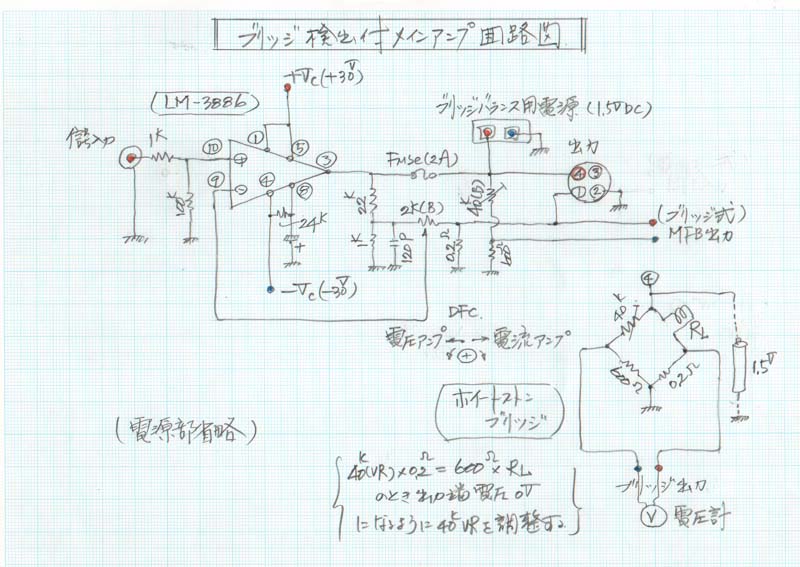 ブリッジ検出付メインアンプ回路図
+Vc(+30V)
LM-3886
ブリッジバランス用電源(1.5VDC)
信号入力
1K
⑩
①
⑤
③
Fuse(2A)
出力
④ ③
① ②
⑨
④
⑧
22K
40K(B)
2K(B)
24K
+
1K
120P
0.2Ω
(ブリッジ式)
MFB出力
-Vc(-30V)
DFC.
電圧アンプ
電流アンプ
(+)
④
40K
RL
600Ω
0.2Ω
1.5V
ホイートストン
ブリッジ
(電源部省略)
40K(VR)×0.2Ω=600Ω×RL
のとき出力端電圧0V
になるように40KVRを調整する
ブリッジ出力
V
電圧計